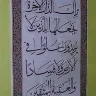 تلك الدار الآخرة
نجعلها للذين لا
يريدون علوا في
الأرض ولا فسادا
والعاقبة للمتقين